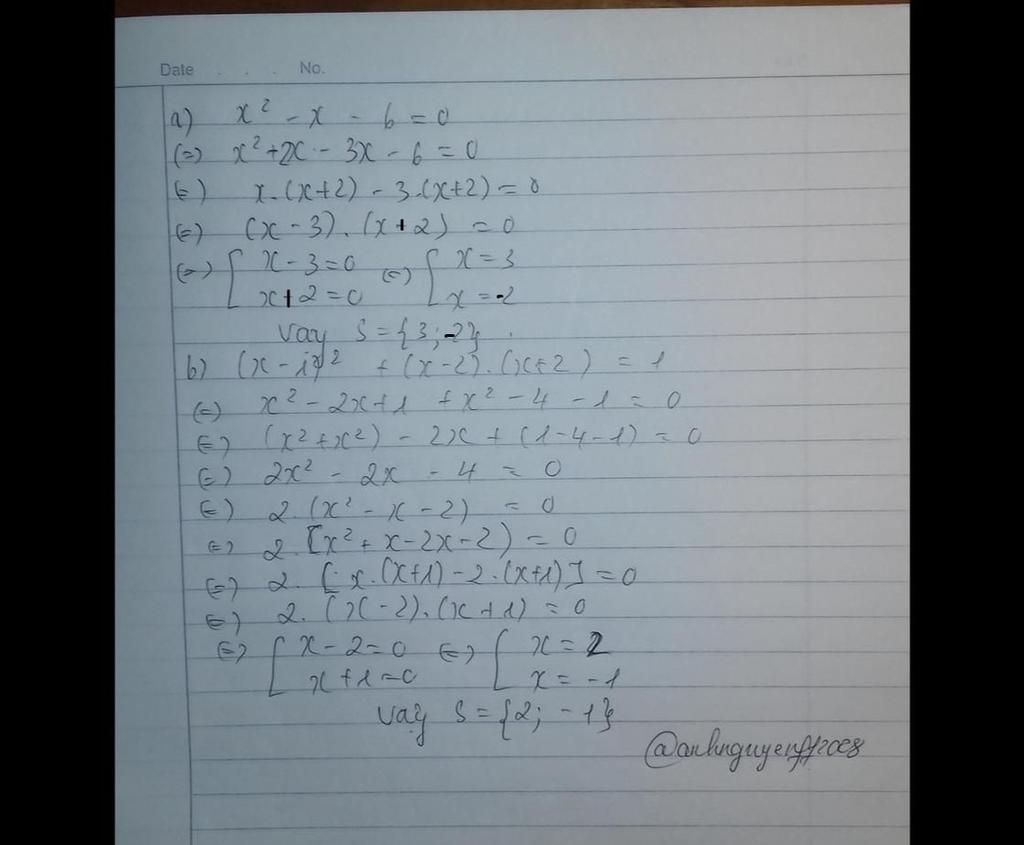 Date . . . No.
a) x² - x - 6 = 0
(=) x² + 2x - 3x - 6 = 0
(=) x.(x+2) - 3.(x+2) = 0
(=) (x - 3).(x + 2) = 0
(=) [ x - 3 = 0 (=) [ x = 3
x + 2 = 0 x = -2
Vay S = {3; -2}.
b) (x - 1)² + (x-2).(x+2) = 1
(=) x² - 2x + 1 + x² - 4 - 1 = 0
(=) (x² + x²) - 2x + (1-4-1) = 0
(=) 2x² - 2x - 4 = 0
(=) 2.(x² - x - 2) = 0
(=) 2.[x² + x - 2x - 2) = 0
(=) 2.[x.(x+1) - 2.(x+1)] = 0
(=) 2.(x - 2).(x + 1) = 0
(=) [ x - 2 = 0 (=) [ x = 2
x + 1 = 0 x = -1
Vậy S = {2; -1}